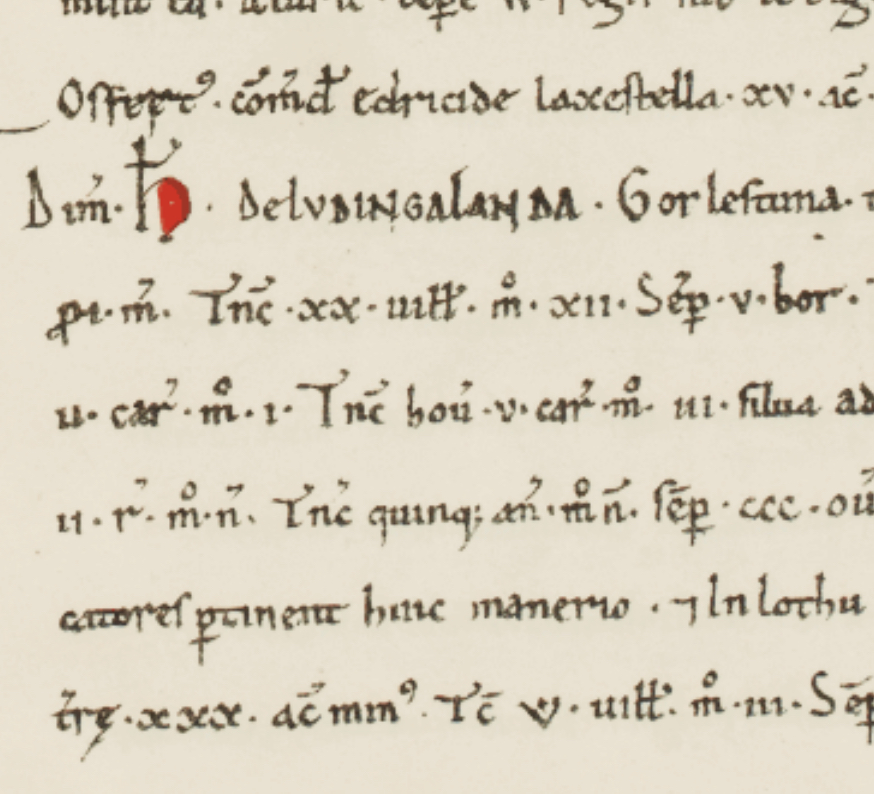 Offert⁹. cōm̄d̄ edricide laxestella. xv. ac̄.
Dim̄. h̄. DeLVDINGALANDA. Gorlestuna. t
ꝓ. i. m̄. Tnc̄. xx. uill̄. m̊. xii. Sēp. v. bor.
ii. car̄. m̊. i. Tnc̄ hou̅. v. car̄. m̊. iii. silua ad
ii. r̄. m̊. n̄. Tnc̄ quinq; an̄. m̊ n̄. sēp. ccc. ou̅
catores ꝑtinent huic manerio. ⁊ In lothu
tr̄ę. xxx. ac̄ mm⁹. Tc̄ v. uill̄. m̊. iii. Sēp